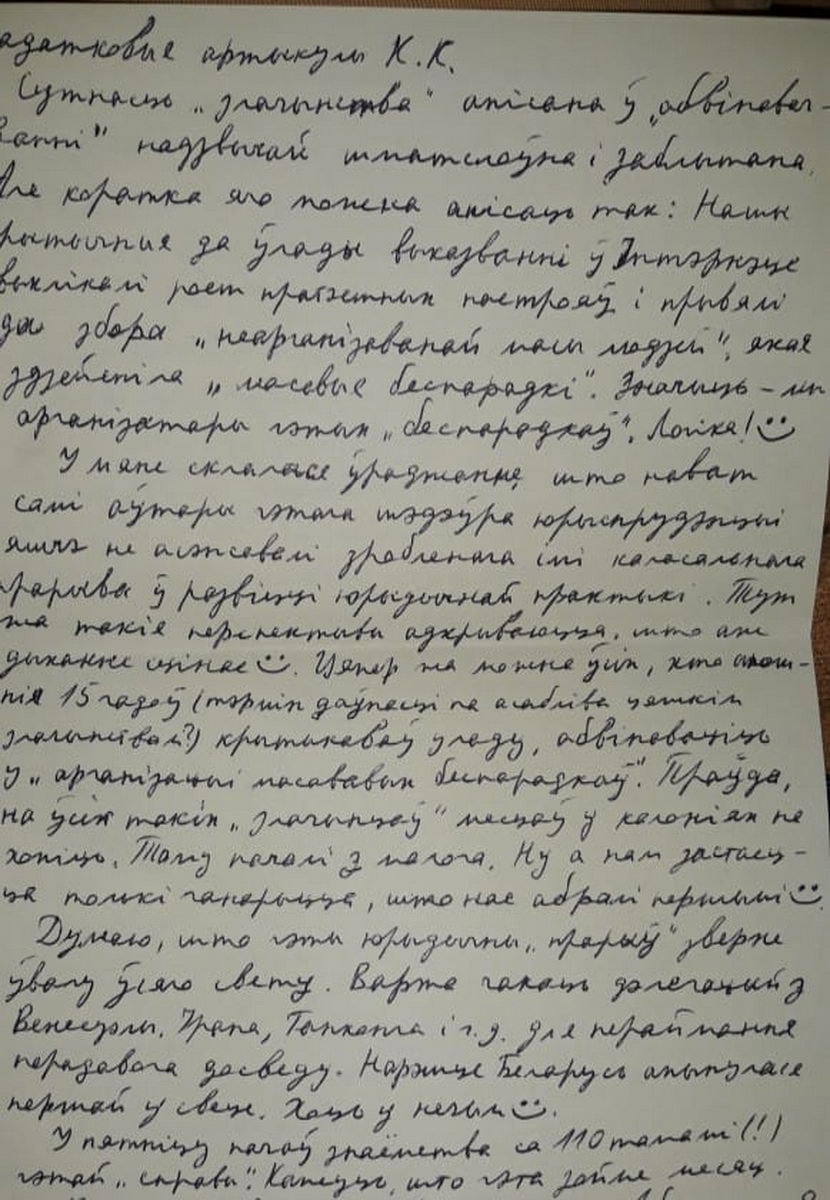 адатковыя артыкулы К.К.
Сутнасць „злачынства" апісана ў „абвінавач-
ванні" надзвычай шматслоўна і заблытана.
Але коратка яго можна апісаць так: Нашы
рытычныя да ўлады выказванні ў Інтэрнэце
выклікалі рост пратэстных настрояў і прывялі
да збора „неарганізаванай масы людзей", якая
здзейсніла „масавыя беспарадкі". Значыць – мы
арганізатары гэтых „беспарадкаў". Логіка! :)
У мяне склалася ўражанне, што нават
самі аўтары гэтага шэдэўра юрыспрудэнцыі
яшчэ не асэнсавалі зробленага імі каласальнага
прарыва ў развіцці юрыдычнай практыкі. Тут
жа такія перспектывы адкрываюцца, што аж
дыханне сцінае :). Цяпер жа можна ўсіх, хто апош-
нія 15 гадоў (тэрмін даўнасці па асабліва цяжкім
злачынствам?) крытыкаваў уладу, абвінаваціць
у „арганізацыі масавых беспарадкаў". Праўда,
на ўсіх такіх „злачынцаў" месцаў у калоніях не
хопіць. Таму пачалі з малога. Ну а нам застаец-
ца толькі ганарыцца, што нас абралі першымі :).
Думаю, што гэты юрыдычны „прарыў" зверне
ўвагу ўсяго свету. Варта чакаць дэлегацый з
Венесуэлы, Ірана, Ганконга і г.д. для пераймання
перадавога досведу. Нарэшце Беларусь апынулася
першай у свеце. Хоць у нечым :).
У пятніцу пачаў знаёмства са 110 тамамі (!)
гэтай „справы". Кажуць, што гэта зойме месяц.